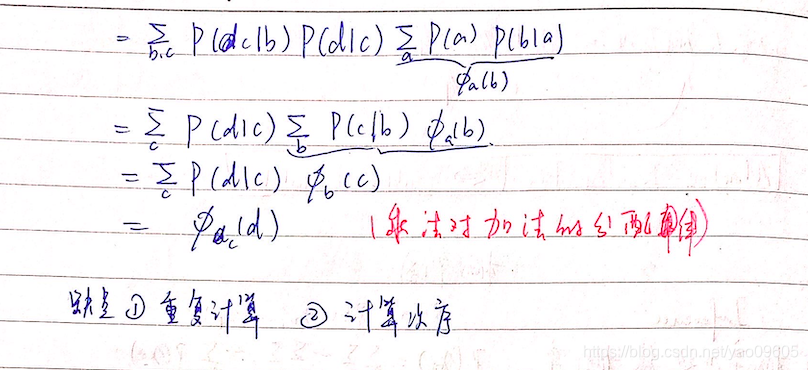 = Σ_{b,c} P(c|b) P(d|c) Σ_a P(a) P(b|a)
ϕ_a(b)
= Σ_c P(d|c) Σ_b P(c|b) ϕ_a(b)
= Σ_c P(d|c) ϕ_b(c)
= ϕ_c(d) (乘法对加法的分配律)
缺点 ① 重复计算 ② 计算次序
https://blog.csdn.net/yao09605